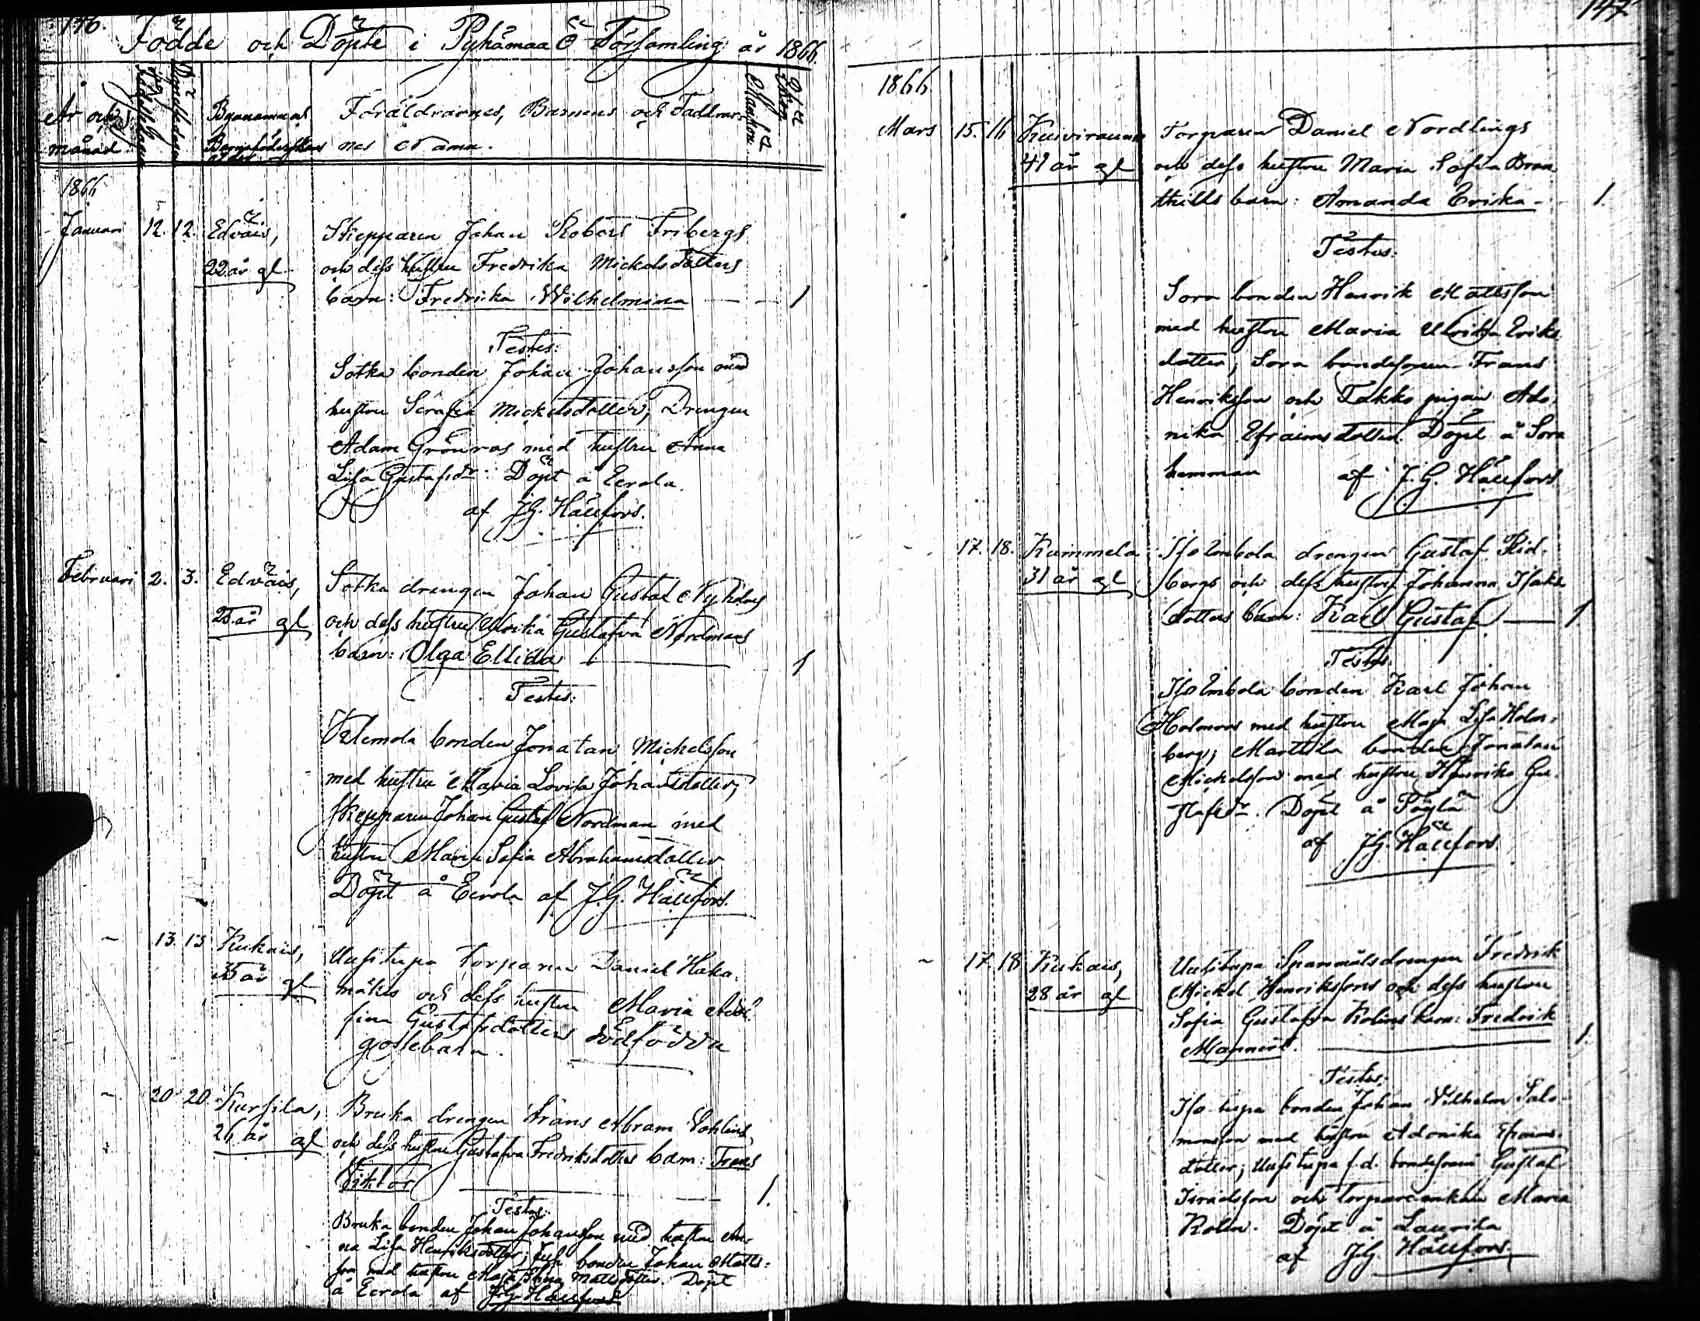 146.
Födde och Döpte i Pyhämaa Ö Församling år 1866.
År och
månad
Födelsedagen
Döpelsedagen
Byanamnet
Barnaföderskans
ålder
Föräldrarnes, Barnens och Faddrar-
nes Namn.
Mankön
Qvinkön
1866
Januari 12. 12. Edväis,
22 år gl
Skepparen Johan Robert Fribergs
och dess hustru Fredrika Mickelsdotters
barn: Fredrika Wilhelmina 1
Testes:
Sotka bonden Johan Johansson med
hustru Serafia Mickelsdotter; Drengen
Adam Grönroos med hustru Anna
Lisa Gustafsdr: Döpt å Eerola.
af J.G. Hällfors.
Februari 2. 3. Edväis,
25 år gl
Sotka drengen Johan Gustaf
och dess hustru Ulrika Gustafva Nordmans
barn: Olga Ellida 1
Testes:
Wälemola bonden Jonatan Mickelsson
med hustru Maria Lovisa Johansdotter;
skepparen Johan Gustaf Nordman med
hustru Maria Sofia Abrahamsdotter
Döpt å Eerola af J.G. Hällfors.
13. 13 Kukais,
35 år gl
Uusitupa torparen Daniel Haka
mäkis och dess hustru Maria Adol
fina Gustafsdotters dödfödda
gossebarn.
20. 20. Kursila,
26 år gl
Bruka drengen Frans Abram
och dess hustru Gustafva Fredriksdotters barn: Frans
Viktor 1.
Testes:
Bruka bonden Johan Johansson med hustru An-
na Lisa Henriksdotter; bonden Johan Matts-
son med hustru Maja Stina Mattsdotter. Döpt
å Eerola af J.G. Hällfors
147
1866.
Mars 15. 16
41 år gl
Torparen Daniel Nordlings
och dess hustru Maria Sofia Bran
thills barn: Amanda Erika 1.
Testes:
Sora bonden Henrik Mattsson
med hustru Maria Ulrika Eriks
dotter; Sora bondesonen Frans
Henriksson och Takko pigan Ado-
nika Efraimsdotter. Döpt å Sora
hemman af J.G. Hällfors
17. 18. Kammela
31 år gl
Iso Embola drengen Gustaf Rid-
bergs och dess hustru Johanna Isaks
dotters barn: Karl Gustaf 1
Testes:
Iso Embola bonden Karl Johan
Holmroos med hustru Maja Lisa Holm-
berg; Marttila bonden Jonatan
Mickelsson med hustru Henrika Gu-
stafsdr. Döpt å
af J.G. Hällfors.
17. 18 Kukais,
28 år gl
Uusitupa Spannmålsdrengen Fredrik
Mickel Henrikssons och dess hustru
Sofia Gustafva Kolins barn: Fredrik
1.
Testes:
Iso tupa bonden Johan Wilhelm Salo-
monsson med hustru Adonika Efraims-
dotter; Uusitupa f.d. bondesonen Gustaf
Israelsson och torpareenkan Maria
Kolin. Döpt å Laurila
af J.G. Hällfors.